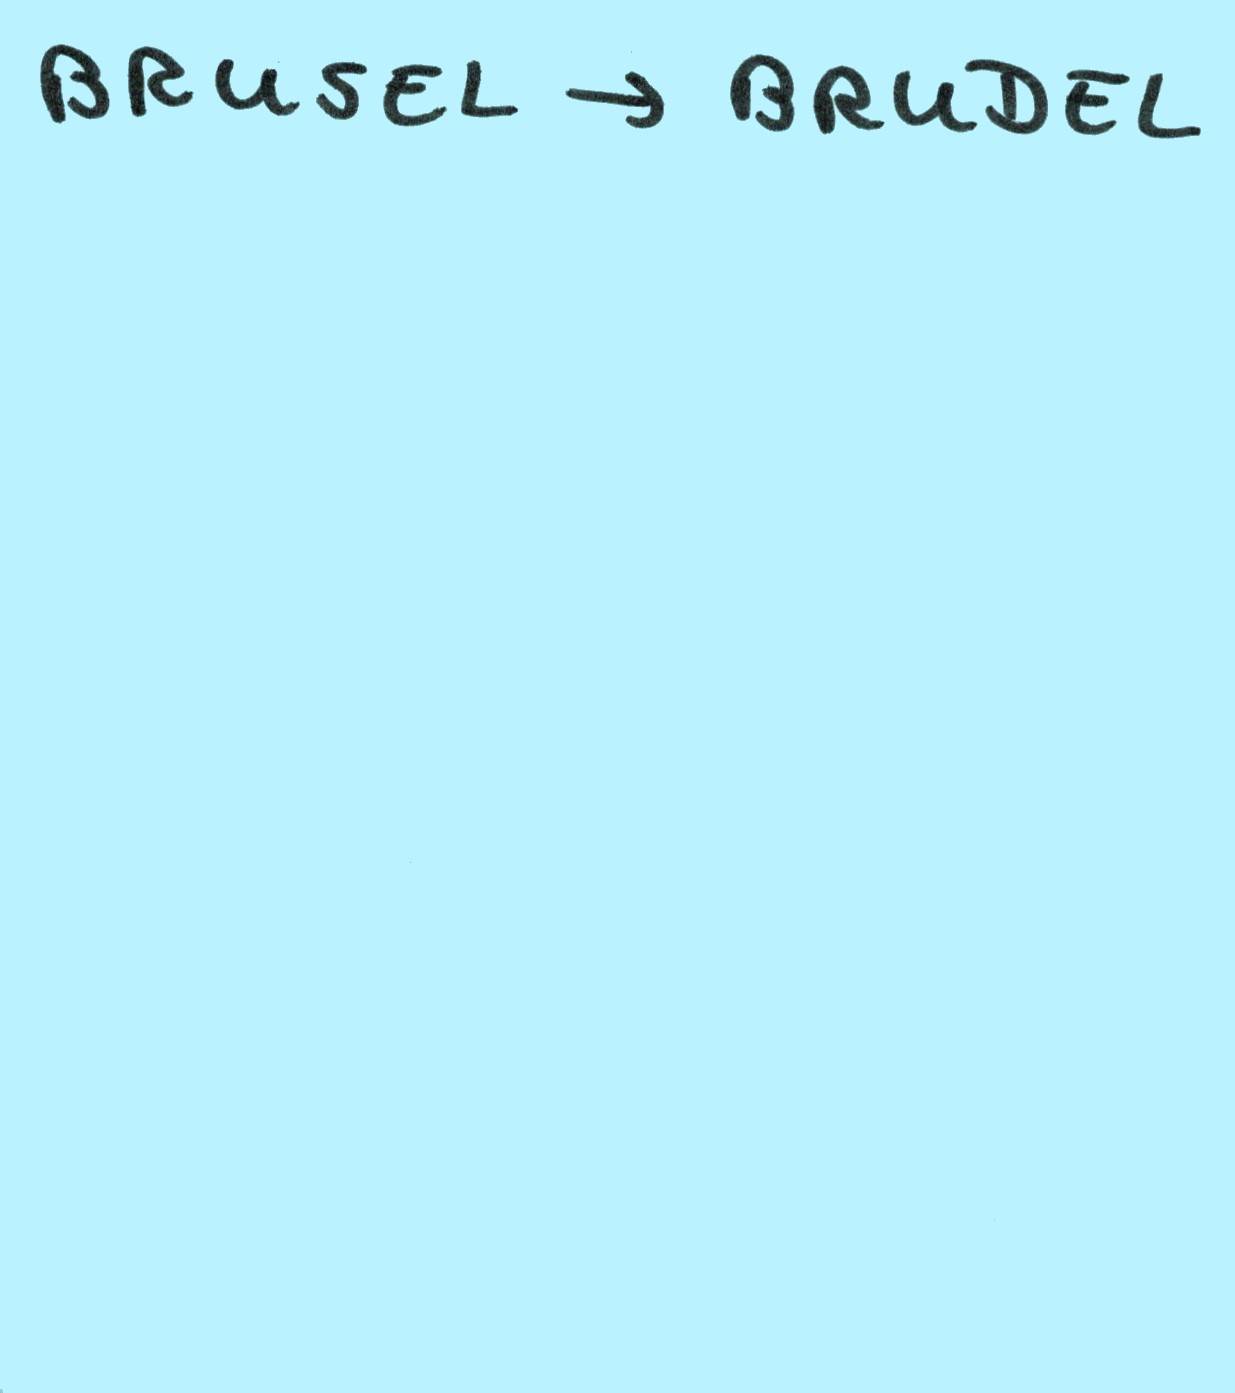 BRUSEL → BRUDEL